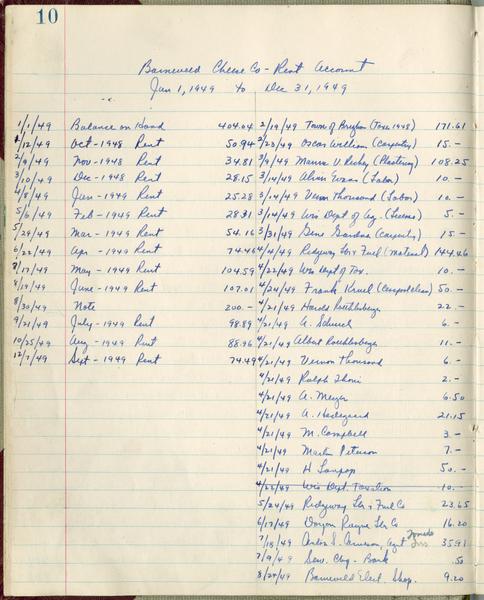 10
Barneveld Cheese Co - Rent Account
Jan 1, 1949 to Dec 31, 1949
1/1/49 Balance on Hand 404.04
1/12/49 Oct - 1948 Rent 50.94
2/9/49 Nov - 1948 Rent 34.81
3/10/49 Dec - 1948 Rent 28.15
4/8/49 Jan - 1949 Rent 25.28
5/6/49 Feb - 1949 Rent 28.31
5/29/49 Mar - 1949 Rent 54.16
6/22/49 Apr - 1949 Rent 74.46
7/17/49 May - 1949 Rent 104.59
8/19/49 June - 1949 Rent 107.01
8/30/49 Note 200.-
9/21/49 July - 1949 Rent 98.89
10/25/49 Aug - 1949 Rent 88.96
12/7/49 Sept - 1949 Rent 74.49
2/19/49 Town of Brigham (Taxes 1948) 171.61
2/23/49 Oscar William (Carpentry) 15.-
3/9/49 (Plastering) 108.25
3/14/49 Alvin Evans (Labor) 10.-
3/14/49 Vern Thousand (Labor) 10.-
3/14/49 Wis Dept of Ag. (License) 5.-
3/31/49 Gene (Carpentry) 15.-
4/4/49 Ridgeway Lbr & Fuel (Material) 144.46
4/22/49 Wis Dept of Tax. 10.-
4/24/49 Frank (Cesspool clean) 50.-
4/21/49 Harold Roethlisberger 22.-
4/21/49 A. Schurch 6.-
4/21/49 Albert Roethlisberger 11.-
4/21/49 Vernon Thousand 6.-
4/21/49 Ralph Thoni 2.-
4/21/49 A. Meyer 6.50
4/21/49 A. 21.15
4/21/49 M. Campbell 3.-
4/21/49 Peterson 7.-
4/21/49 H 50.-
4/22/49 Wis Dept. Taxation 10.-
5/24/49 Ridgeway Lbr & Fuel Co 23.65
6/17/49 Rayne Lbr Co 16.20
7/15/49 Agnt Tornado Ins 35.91
7/9/49 Serv. Chg - Bank .50
8/24/49 Barneveld Elect. Shop. 9.20